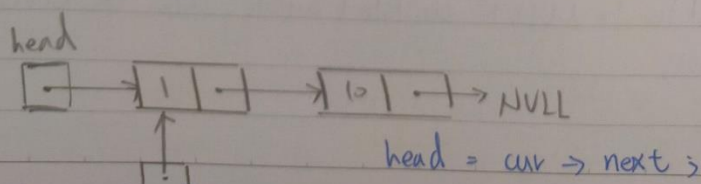 head
1 10 NULL
head = cur → next ;